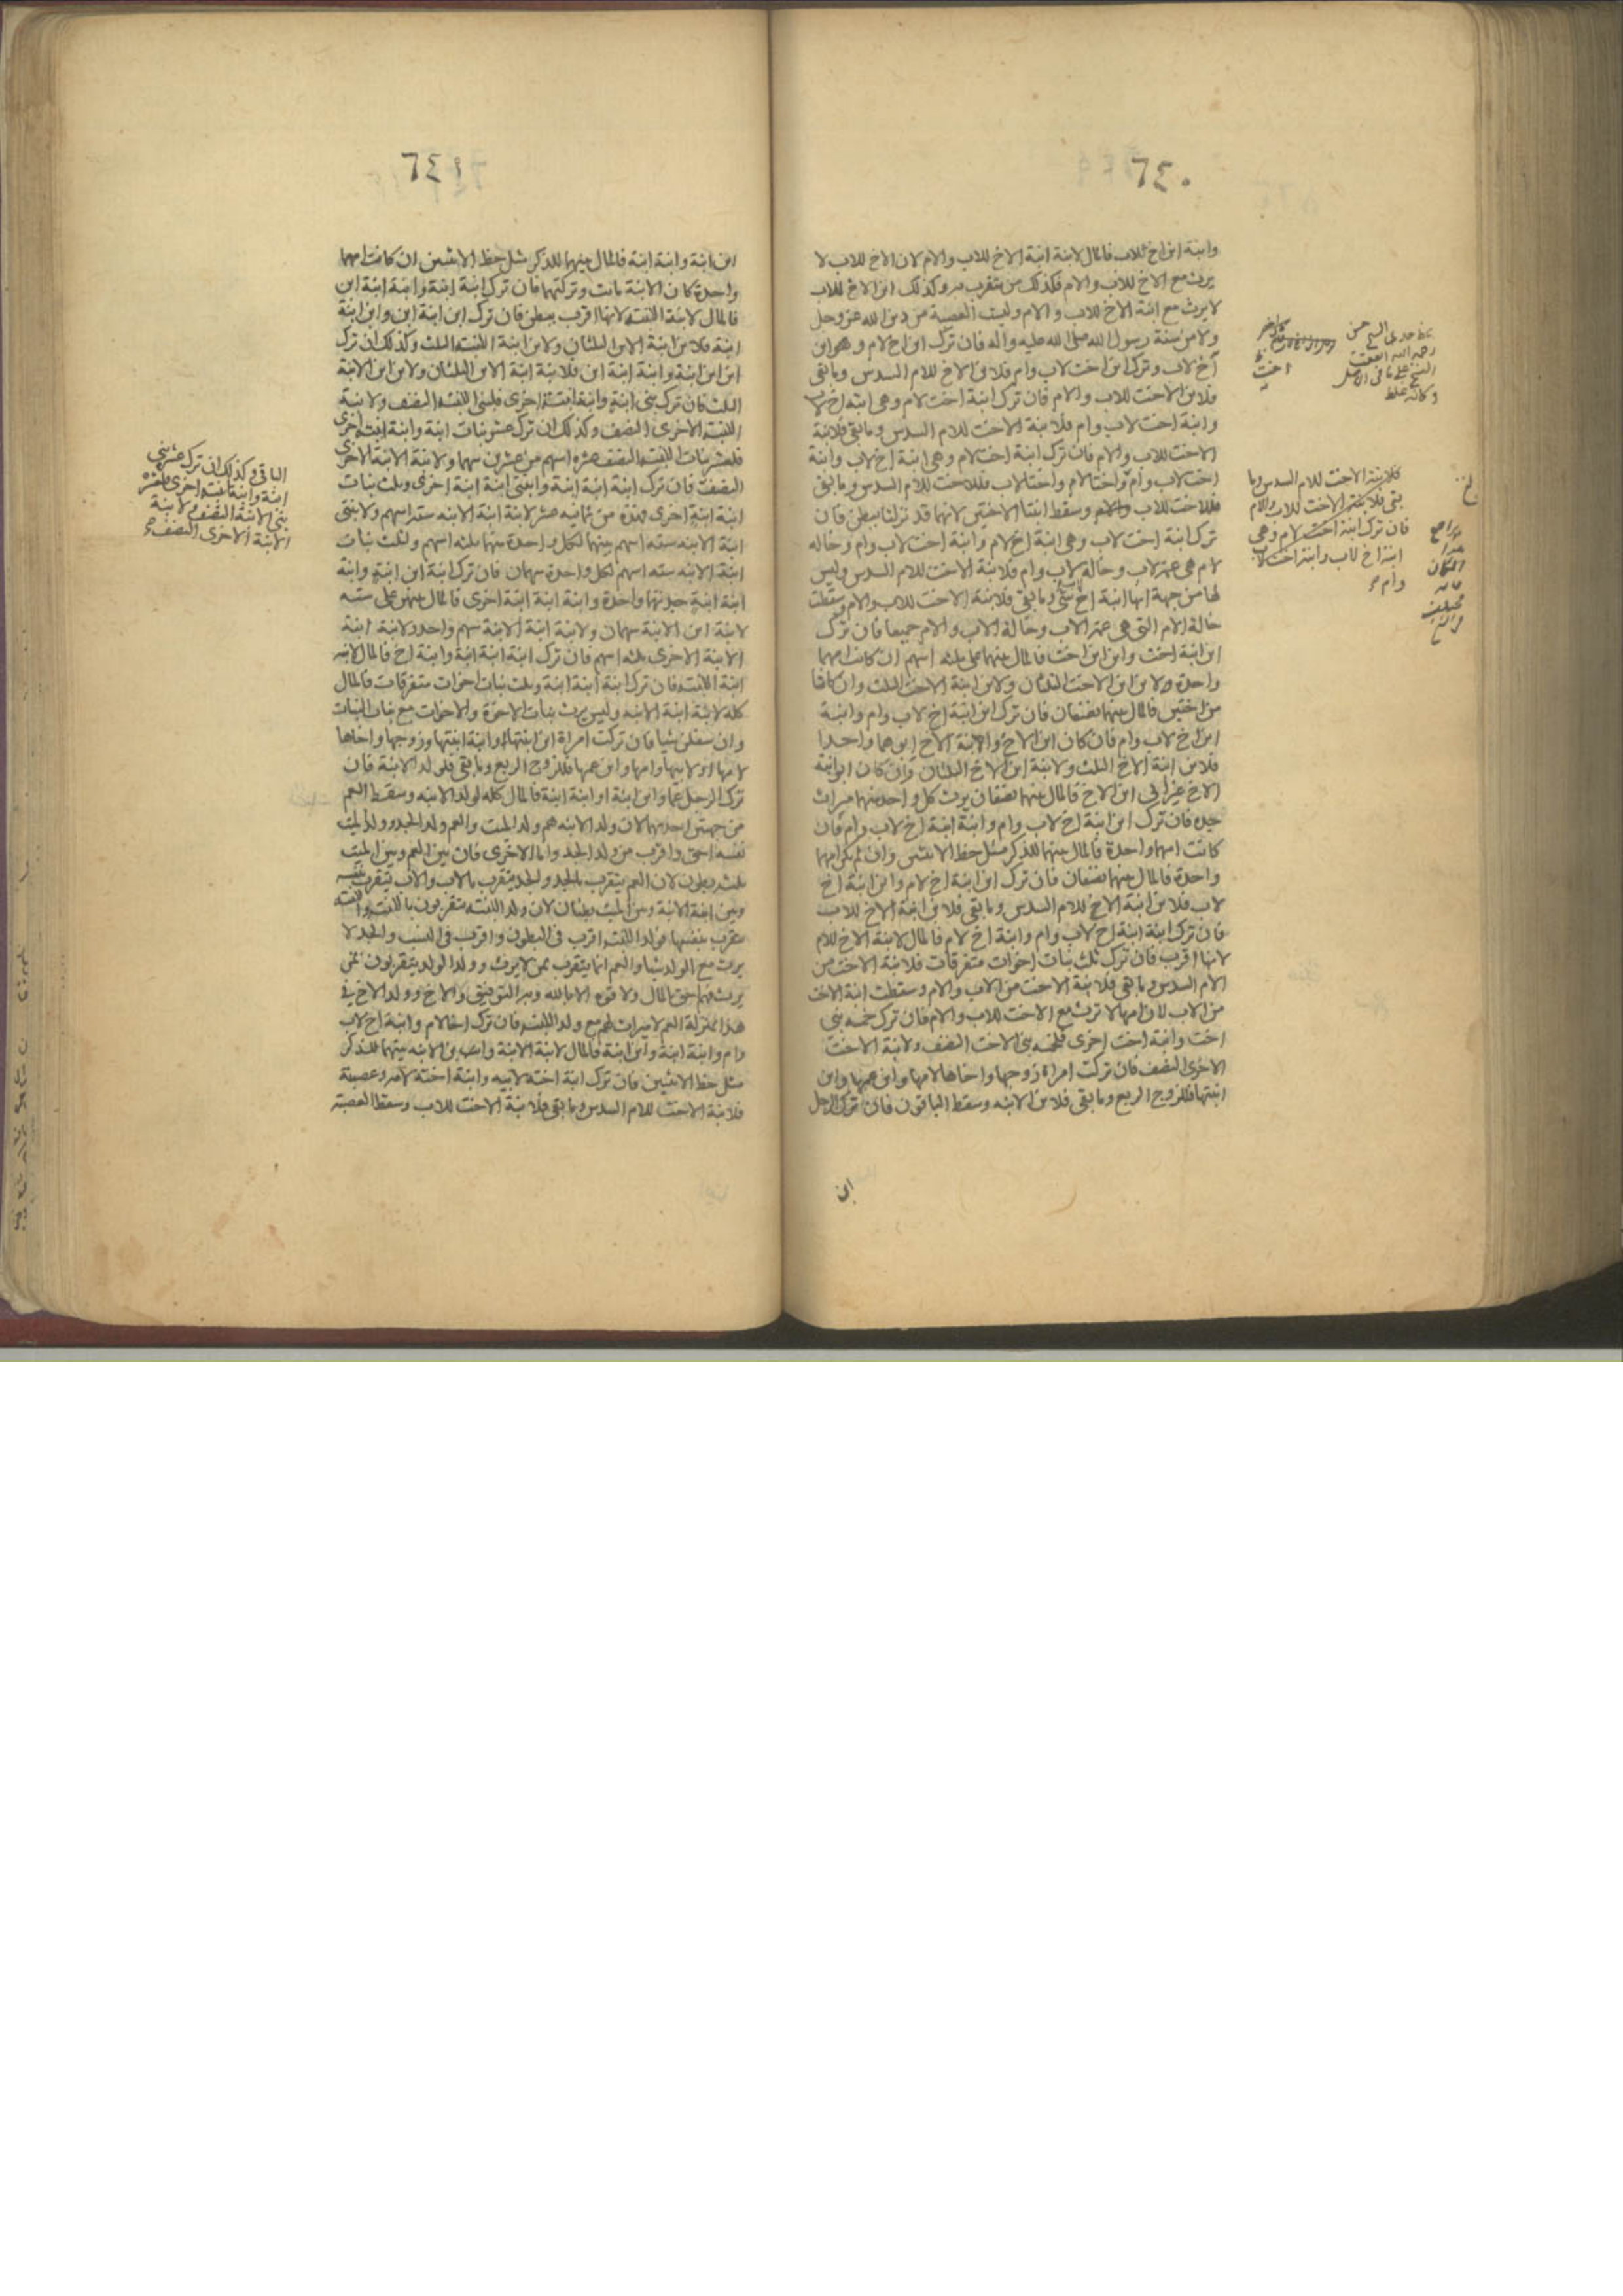 ٦٤٠
وابنة ابن اخ للاب فالمال لابنة ابنة الاخ للاب والام لان الاخ للاب لا
يرث مع الاخ للاب والام فكذلك من يتقرب به وكذلك ابن الاخ للاب
لا يرث مع ابنة الاخ للاب والام وليث العصبة من دين الله عز وجل
ولا من سنة رسول الله صلى الله عليه واله فان ترك ابن اخ لام وهو ابن
اخ لاب وترك ابن اخت لاب وام فلابن الاخ للام السدس وما بقى
فلابن الاخت للاب والام فان ترك ابنة اخت لام وهى ابنة اخ لاب
وابنة اخت لاب وام فلابنة الاخت للام السدس وما بقى فلابنة
الاخت للاب والام فان ترك ابنة اخت لام وهى ابنة اخ لاب وابنة
اخت لاب وام واختا لام واختا لاب فللاخت للام السدس وما بقى
فللاخت للاب وسقط ابنتا الاختين لانهما قد نزلتا ببطن فان
ترك ابنة اخت لاب وهى ابنة اخ لام وابنة اخت لاب وام وخاله
لام هى عمة لاب وخالة لاب وام فلابنة الاخت للام السدس وليس
لها من جهة انها ابنة اخ شئ وما بقى فلابنة الاخت للاب والام وسقطت
خالة الام التى هى عمة الاب وخالة الاب والام جميعا فان ترك
ابن ابنة اخت وابن ابن اخت فالمال بينهما على ثلثه اسهم ان كانت امهما
واحدة ولابن ابن الاخت الثلثان ولابن ابنة الاخت الثلث وان كانا
من اختين فالمال بينهما نصفان فان ترك ابن ابنة اخ لاب وام وابنة
ابن اخ لاب وام فان كان ابن الاخ وابنة الاخ ابوهما واحدا
فلابن ابنة الاخ الثلث ولابنة ابن الاخ الثلثان وان كان ابو ابنة
الاخ غير ابى ابن الاخ فالمال بينهما نصفان يرث كل واحد منهما ميراث
جده فان ترك ابن ابنة اخ لاب وام وابنة ابنة اخ لاب وام فان
كانت امهما واحدة فالمال بينهما للذكر مثل حظ الانثيين وان لم يكن امهما
واحدة فالمال بينهما نصفان فان ترك ابن ابنة اخ لام وابن ابنة اخ
لاب فلابن ابنة الاخ للام السدس وما بقى فلابن ابنة الاخ للاب
فان ترك ابنة ابنة اخ لاب وام وابنة اخ لام فالمال لابنة الاخ للام
لانها اقرب فان ترك ثلث بنات اخوات متفرقات فلابنة الاخت من
الام السدس وما بقى فلابنة الاخت من الاب والام وسقطت ابنة الاخت
من الاب لان امها لا ترث مع الاخت للاب والام فان ترك خمسه بنى
اخت وابنة اخت اخرى فلخمسه بنى الاخت النصف ولابنة الاخت
الاخرى النصف فان تركت امراة زوجها واخاها لامها وابن عمها وابن
ابنتها فللزوج الربع وما بقى فلابن الابنه وسقط الباقون فان ترك الرجل
ابن
رحمه الله
وكانه غلط
اخت
فلابنة الاخت للام السدس وما
بقى فلابنة الاخت للاب والام
فان ترك ابنة اخت لام وهى
ابنة اخ لاب وابنة اخت لاب
وام
٦٤١
ابن ابنة وابنة ابنة فالمال بينهما للذكر مثل حظ الانثيين ان كانت امهما
واحدة كان الابنة ماتت وتركتهما فان ترك ابنة ابنة وابنة ابنة ابن
فالمال لابنة البنت لانها اقرب ببطن فان ترك ابن ابنة ابن وابن ابنة
ابنة فلابن ابنة الابن الثلثان ولابن ابنة البنت الثلث وكذلك ان ترك
ابن ابن ابنة وابنة ابنة ابن فلابنة ابنة الابن الثلثان ولابن ابن الابنة
الثلث فان ترك بنى ابنة وابنة ابنة اخرى فلبنى البنت النصف ولابنة
البنت الاخرى النصف وكذلك ان ترك عشر بنات ابنة وابنة ابنة اخرى
فلعشر بنات البنت النصف عشره اسهم من عشرين سهما ولابنة الابنة الاخرى
النصف فان ترك ابنة ابنة ابنة وابنتى ابنة ابنة اخرى وثلث بنات
ابنة ابنة اخرى فهذه من ثمانيه عشر لابنة ابنة الابنه سته اسهم ولابنتى
ابنة الابنه سته اسهم بينهما لكل واحدة منهما ثلثه اسهم ولثلث بنات
ابنة الابنه سته اسهم لكل واحدة سهمان فان ترك ابنة ابن ابنة وابنة
ابنة ابنة جدتهما واحدة وابنة ابنة ابنة اخرى فالمال بينهن على سته
لابنة ابن الابنة سهمان ولابنة ابنة الابنة سهم واحد ولابنة ابنة
الابنة الاخرى ثلثه اسهم فان ترك ابنة ابنة ابنة وابنة اخ فالمال لابنه
ابنة البنت فان ترك ابنة ابنة ابنة وثلث بنات اخوات متفرقات فالمال
كله لابنة ابنة الابنه وليس يرث بنات الاخوة والاخوات مع بنات البنات
وان سفلن شيا فان تركت امراة ابن ابنتها او ابنة ابنتها وزوجها واخاها
لامها او لابيها وامها وابن عمها فللزوج الربع وما بقى فلولد الابنة فان
ترك الرجل عما وابن ابنة او ابنة ابنة فالمال كله لولد الابنه وسقط العم
من جهتين احدهما لان ولد الابنه هم ولد الميت والعم ولد الجد وولد الميت
نفسه احق واقرب من ولد الجد واما الاخرى فان بين العم وبين الميت
ثلث بطون لان العم يتقرب بالجد والجد يتقرب بالاب والاب يتقرب بنفسه
وبين ابنة الابنة وبين الميت بطنان لان ولد البنت يتقربون بالبنت والبنت
تتقرب بنفسها فولد البنت اقرب فى البطون واقرب فى النسب والجد لا
يرث مع الولد شيا والعم انما يتقرب بمن لا يرث وولد الولد يتقربون بمن
يرث فهم احق بالمال ولا قوه الا بالله وبه التوفيق والاخ وولد الاخ فى
هذا بمنزلة العم لا ميراث لهم مع ولد البنت فان ترك اخا لام وابنة اخ لاب
وام وابنة ابنة وابن ابنة فالمال لابنة الابنة وابن الابنه بينهما للذكر
مثل حظ الانثيين فان ترك ابنة اخته لابيه وابنة اخته لامه وعصبة
فلابنة الاخت للام السدس وما بقى فلابنة الاخت للاب وسقط العصبة
الباقى وكذلك ان ترك عشر بنى
ابنة وابنة ابنة اخرى فلعشره
بنى الابنة النصف ولابنة
الابنة الاخرى النصف